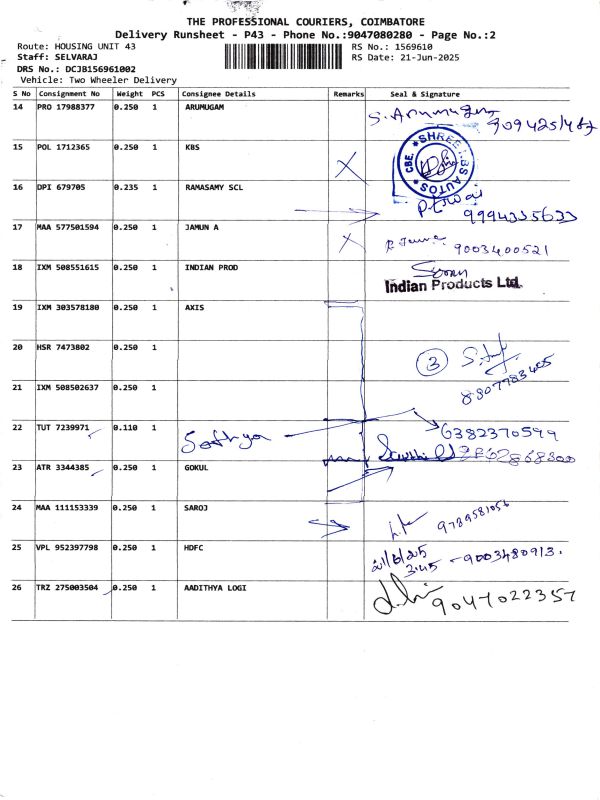 THE PROFESSIONAL COURIERS, COIMBATORE
Delivery Runsheet - P43 - Phone No.:9047080280 - Page No.:2
Route: HOUSING UNIT 43 RS No.: 1569610
Staff: SELVARAJ RS Date: 21-Jun-2025
DRS No.: DCJB156961002
Vehicle: Two Wheeler Delivery
S No Consignment No Weight PCS Consignee Details Remarks Seal & Signature
14 PRO 17988377 0.250 1 ARUMUGAM S. Arumugam
15 POL 1712365 0.250 1 KBS SHREE KBS AUTOS CBE.
16 DPI 679705 0.235 1 RAMASAMY SCL
9994335633
17 MAA 577501594 0.250 1 JAMUN A 9003400521
18 IXM 508551615 0.250 1 INDIAN PROD
Indian Products Ltd.
19 IXM 303578180 0.250 1 AXIS
20 HSR 7473802 0.250 1 3
8807783405
21 IXM 508502637 0.250 1
22 TUT 7239971 0.110 1 Sathya 6382370599
23 ATR 3344385 0.250 1 GOKUL
24 MAA 111153339 0.250 1 SAROJ 9789581056
25 VPL 952397798 0.250 1 HDFC 21/6/25
3.45 - 9003480913.
26 TRZ 275003504 0.250 1 AADITHYA LOGI 9047022357